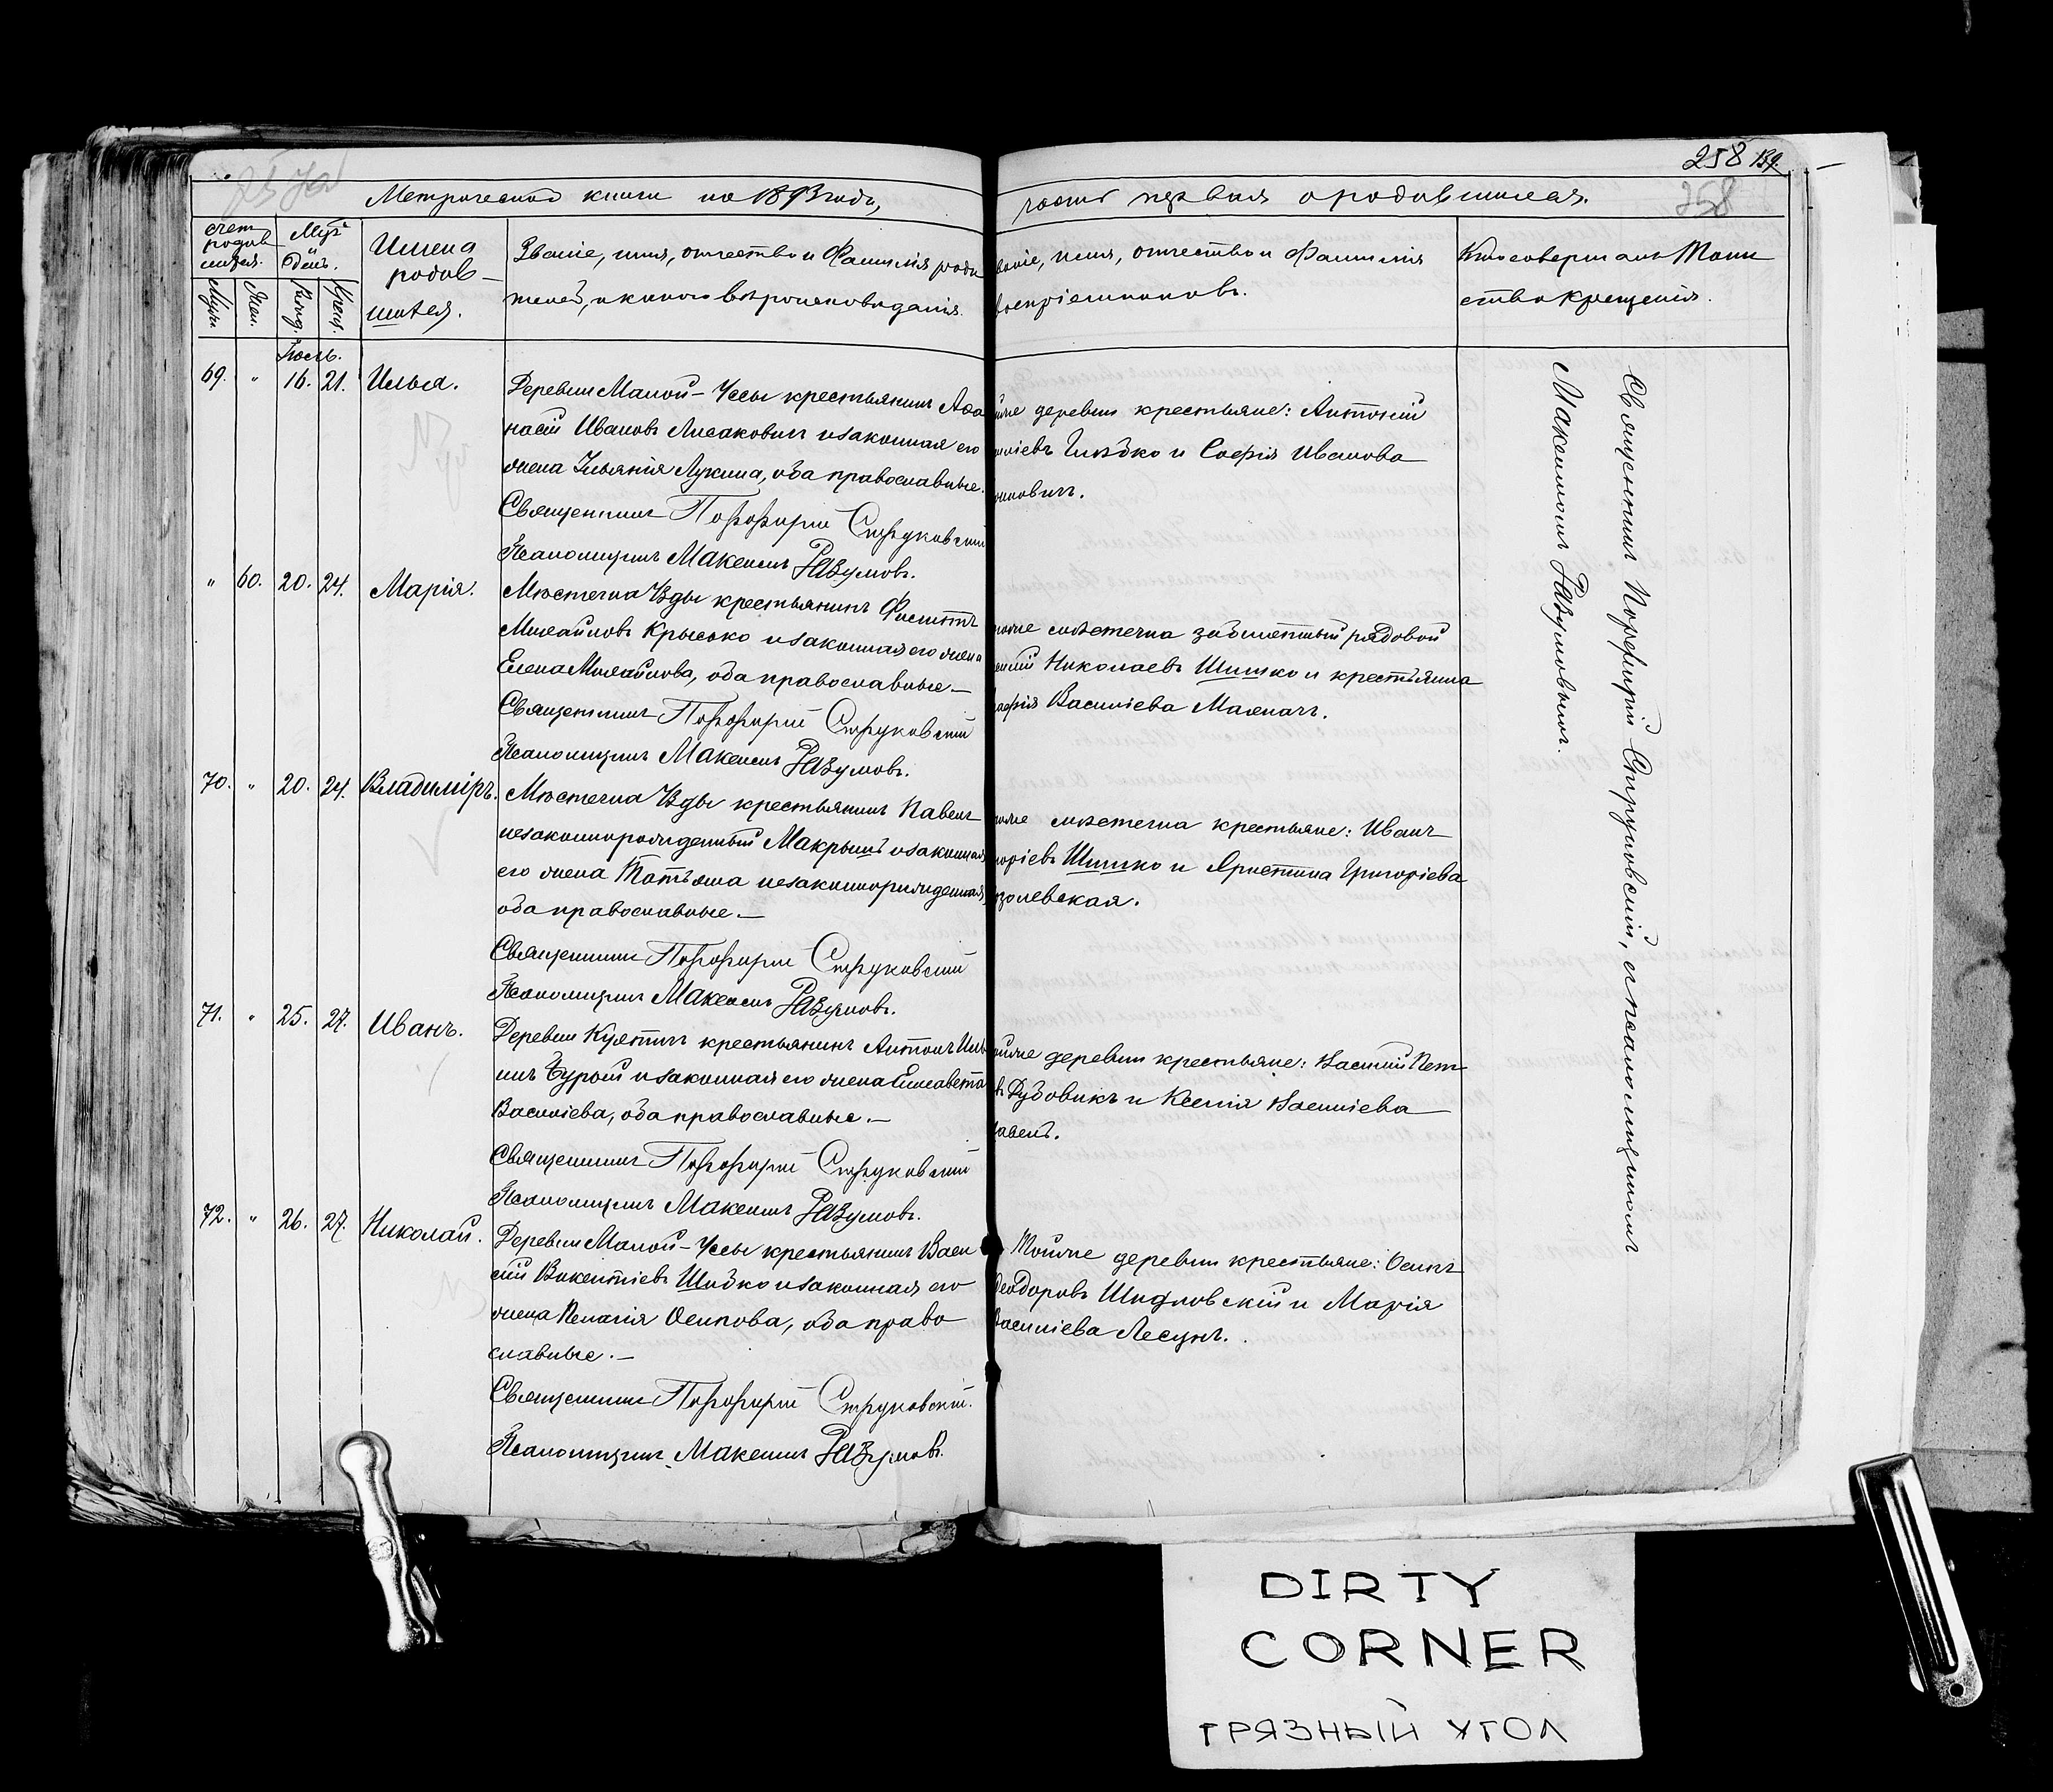 258 139.
258
Метрической книги на 1893 годъ,
часть первая о родившихся.
Счет родив шихся.
Мсцъ и день.
Имена родив- шихся.
Званіе, имя, отчество и фамилія роди телей, и какого вѣроисповѣданія.
ваніе, имя, отчество и фамилія воспріемниковъ.
Кто совершалъ Таин ство крещенія.
Муж. Жен. Рожд. Крещ.
Іюль.
69. " 16. 21. Илья.
Деревни Малой-Уссы крестьянинъ Аѳа
насій Ивановъ Лисаковичъ и законная его
жена Ульянія Лукина, оба православные.
Священникъ Порфирій Струковскій
Псаломщикъ Максимъ Разумовъ.
же деревни крестьяне: Антоній
и Софія Иванова
новичъ.
" 60. 20. 24. Марія.
Мѣстечка Узды крестьянинъ
Михайловъ Крысько и законная его жена
Елена Михайлова, оба православные.—
Священникъ Порфирій Струковскій
Псаломщикъ Максимъ Разумовъ.
же мѣстечка рядовой
Николаевъ Шишко и крестьянка
Василіева
70. " 20. 24. Владиміръ.
Мѣстечка Узды крестьянинъ Павелъ
незаконнорожденный и законная
его жена Татьяна незаконнорожденная,
оба православные.—
Священникъ Порфирій Струковскій
Псаломщикъ Максимъ Разумовъ.
же мѣстечка крестьяне: Иванъ
Шишко и Христина Григоріева
золевская.
71. " 25. 27. Иванъ.
Деревни крестьянинъ Антонъ Иль
инъ Бурый и законная его жена Елисавета
Василіева, оба православные.—
Священникъ Порфирій Струковскій
Псаломщикъ Максимъ Разумовъ.
же деревни крестьяне: Василій Пет
въ Дубовикъ и Ксенія Василіева
72. " 26. 27. Николай.
Деревни Малой-Уссы крестьянинъ Васи
лій Викентіевъ Шибко и законная его
жена Пелагія Осипова, оба право
славные.—
Священникъ Порфирій Струковскій.
Псаломщикъ Максимъ Разумовъ.
Той же деревни крестьяне: Осипъ
Ѳеодоровъ Шидловскій и Марія
Василіева Лесунъ.
Священникъ Порфирій Струковскій, съ псаломщикомъ
Максимомъ Разумовымъ.
DIRTY
CORNER
ГРЯЗНЫЙ УГОЛ